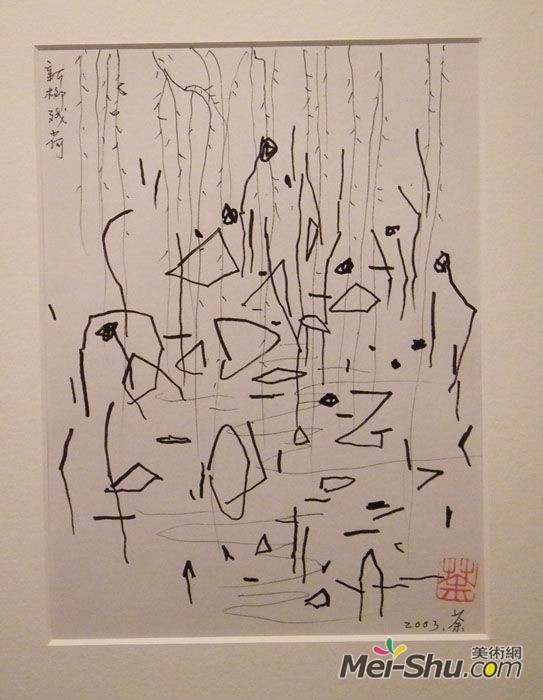 新柳残荷
茶
2003.茶
美術網
Mei-Shu.com